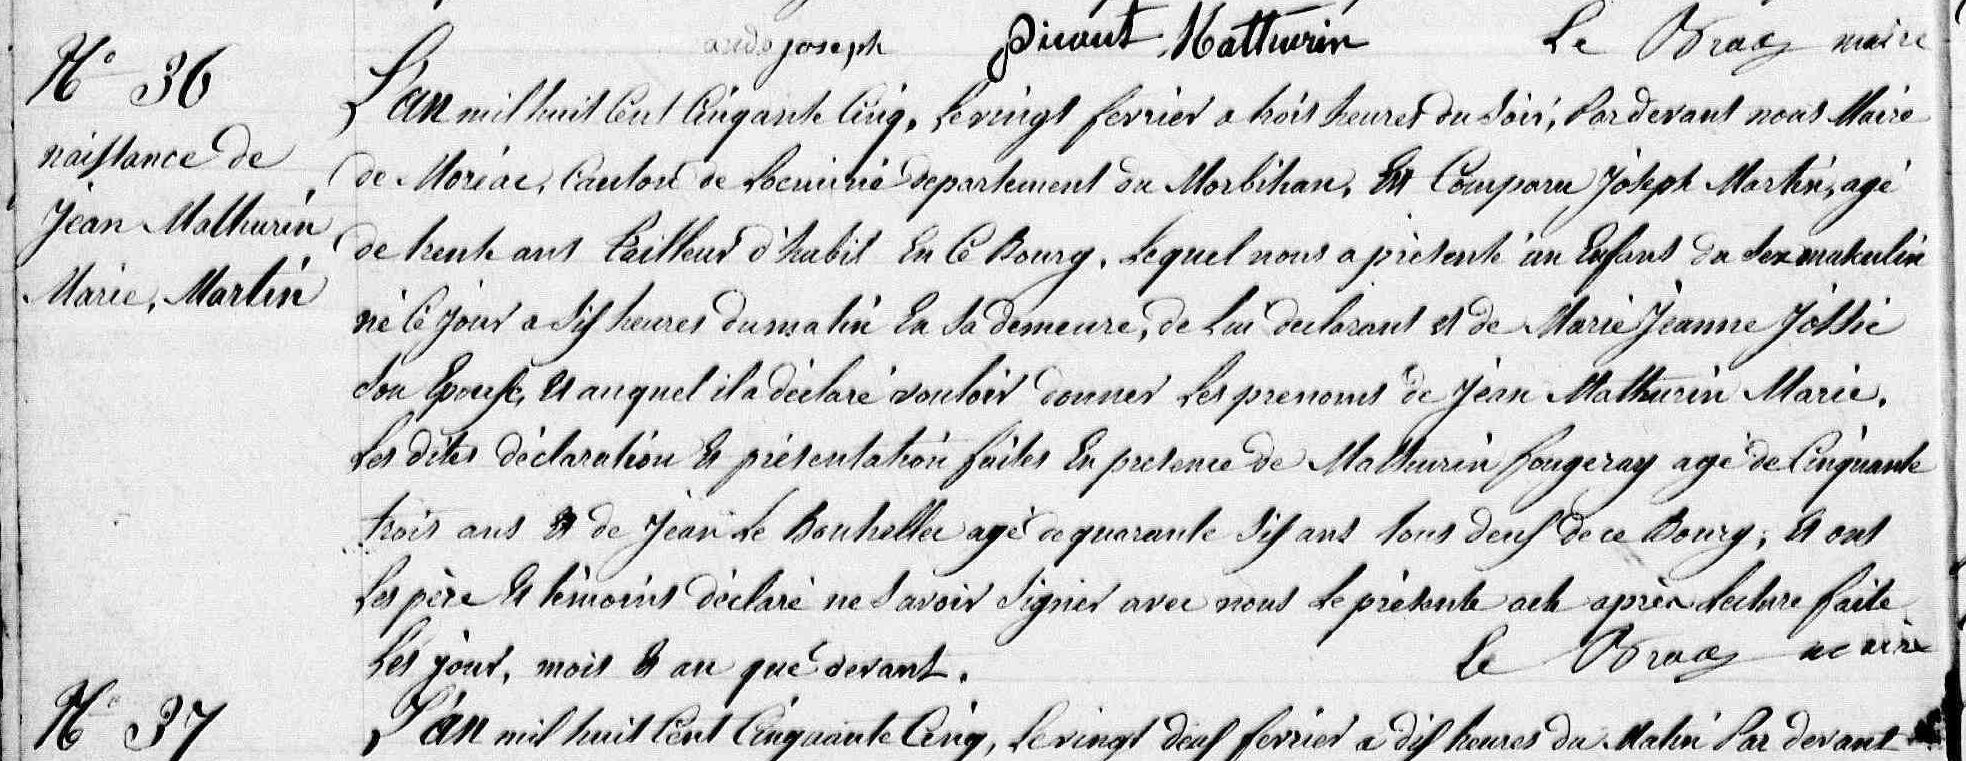 audo joseph Picaut Mathurin Le Bray maire
N° 36
naissance de
Jean Mathurin
Marie, Martin
L'an mil huit Cent Cinqante Cinq, Le vingt fevrier a trois heures du Soir, Par devant nous Maire
de Moréac, Canton de Locminé departement du Morbihan, Est Comparu Joseph Martin, agé
de trente ans tailleur d'habit En Ce Bourg, Lequel nous a présenté un Enfant du Sex maskulin
né Ce jour a Six heures du matin En Sa demeure, de Lui declarant et de Marie Jeanne Jossic
Son Epouse, Et auquel il a déclaré vouloir donner Les prenoms de Jean Mathurin Marie.
Les dites déclaration Et présentation faites En presence de Mathurin fougeray agé de Cinquante
trois ans Et de Jean Le Bouhellec agé de quarante Six ans tous deux de ce Bourg; Et ont
Les père Et témoins déclaré ne Savoir Signer avec nous Le présente acte après Lecture faite
Les jour, mois Et an que devant. Le Bray maire
N° 37
L'an mil huit Cent Cinquante Cinq, Le vingt deux fevrier a dix heures du Matin Par devant